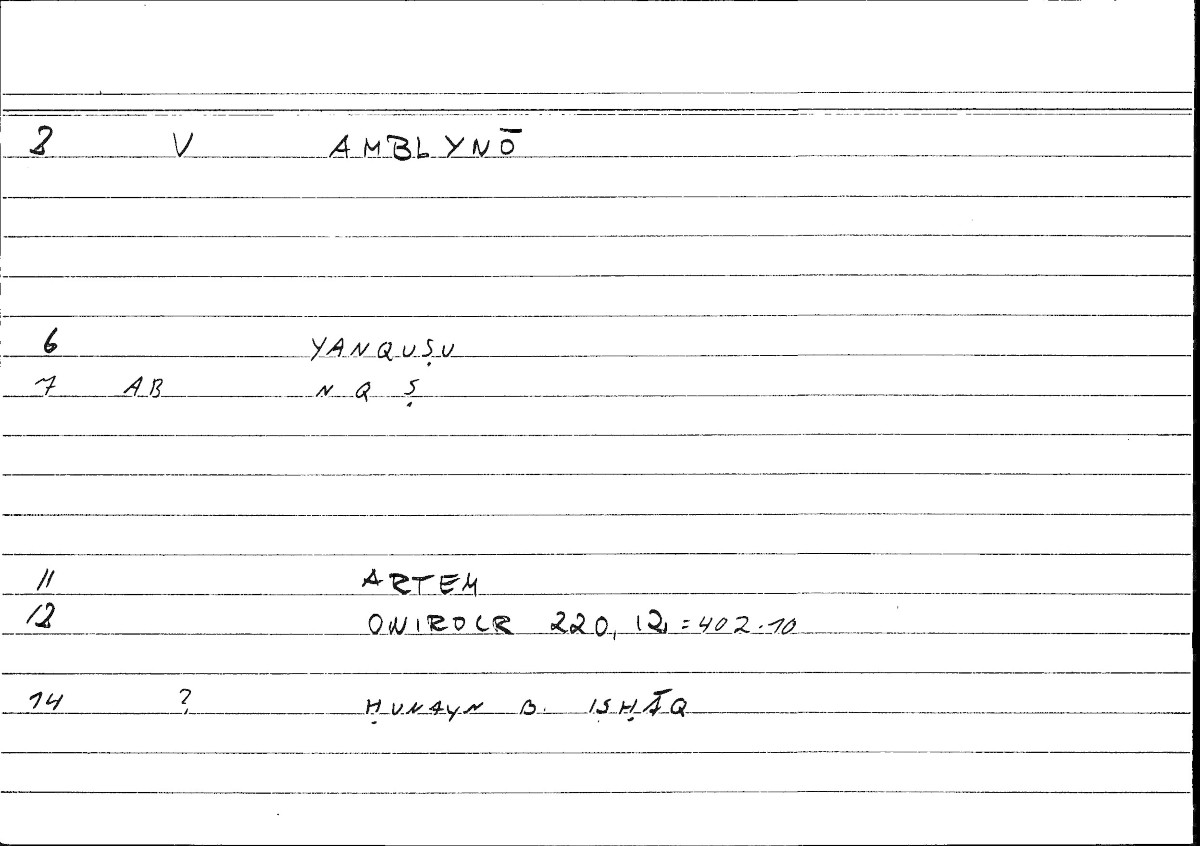 2 V AMBLYNŌ
6 YANQUṢU
7 AB N Q Ṣ
11 ARTEM
12 ONIROCR 220, 12 = 402.10
14 ? ḤUNAYN B. ISḤĀQ